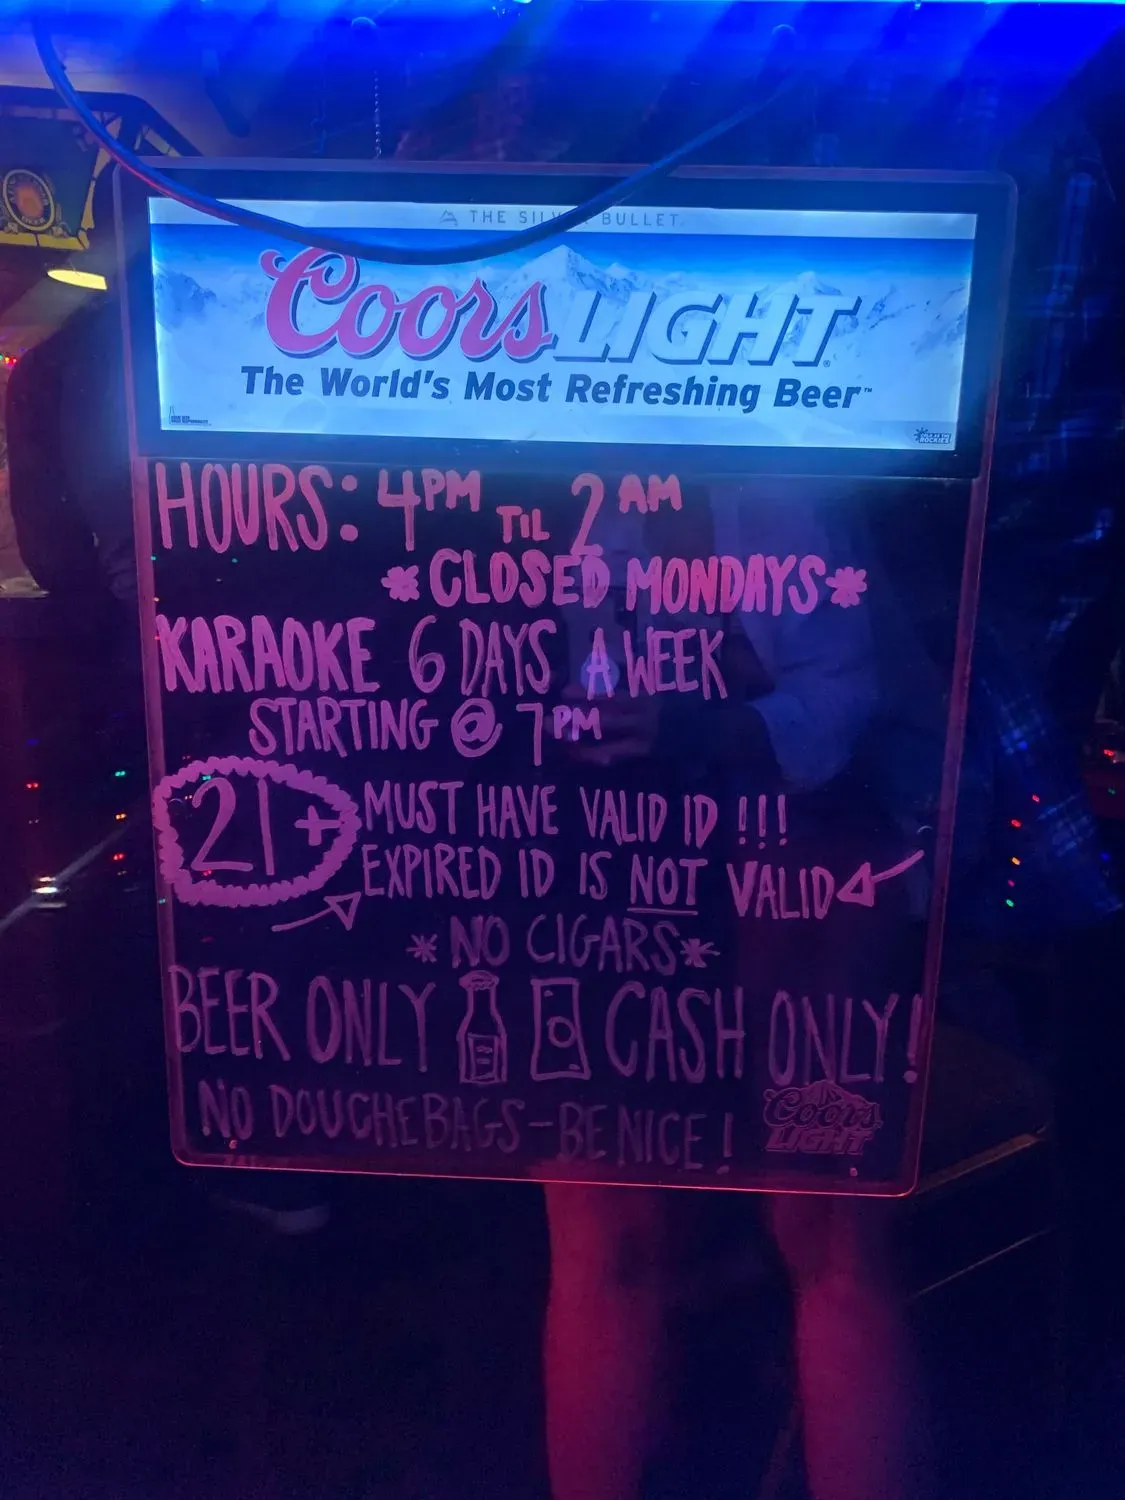 THE SILVER BULLET
Coors LIGHT
The World's Most Refreshing Beer™
HOURS: 4PM TIL 2AM
*CLOSED MONDAYS*
KARAOKE 6 DAYS A WEEK
STARTING @ 7PM
21+ MUST HAVE VALID ID !!!
EXPIRED ID IS NOT VALID
*NO CIGARS*
BEER ONLY CASH ONLY!
NO DOUCHEBAGS - BE NICE!
Coors
LIGHT